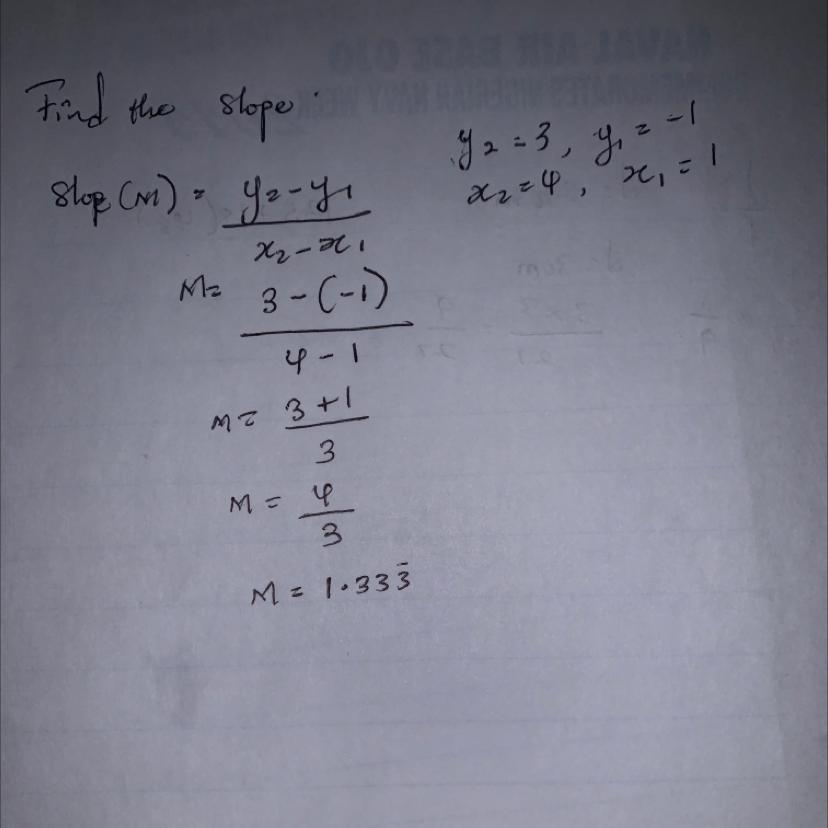 Find the slope.
y₂ = 3, y₁ = -1
x₂ = 4, x₁ = 1
Slop (M) = y₂ - y₁
x₂ - x₁
M = 3 - (-1)
4 - 1
M = 3 + 1
3
M = 4
3
M = 1.333̄